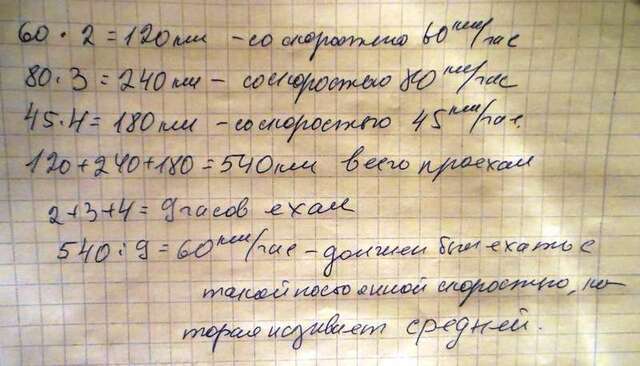 60 · 2 = 120 км - со скоростью 60 км/час
80 · 3 = 240 км - со скоростью 80 км/час
45 · 4 = 180 км - со скоростью 45 км/час.
120 + 240 + 180 = 540 км всего проехал
2 + 3 + 4 = 9 часов ехал
540 : 9 = 60 км/час - должен был ехать с
такой постоянной скоростью, ко-
торая называет средней.